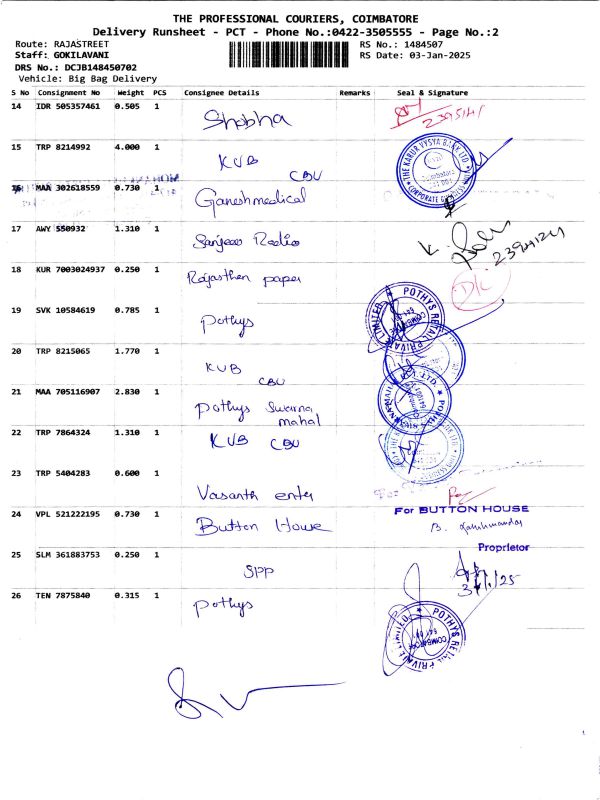 THE PROFESSIONAL COURIERS, COIMBATORE
Delivery Runsheet - PCT - Phone No.:0422-3505555 - Page No.:2
Route: RAJASTREET RS No.: 1484507
Staff: GOKILAVANI RS Date: 03-Jan-2025
DRS No.: DCJB148450702
Vehicle: Big Bag Delivery
S No Consignment No Weight PCS Consignee Details Remarks Seal & Signature
14 IDR 505357461 0.505 1
Shobha
15 TRP 8214992 4.000 1
KVB
CBU
THE KARUR VYSYA BANK LTD
16 MAA 302618559 0.730 1
Ganesh medical
17 AWY 550932 1.310 1
Sanjeev Radio
18 KUR 7003024937 0.250 1
Rajasthan paper
19 SVK 10584619 0.785 1
Pothys
POTHYS RETAIL PRIVATE LIMITED
COIMBATORE
20 TRP 8215065 1.770 1
KVB
CBU
21 MAA 705116907 2.830 1
Pothys Swarna
mahal
22 TRP 7864324 1.310 1
KVB CBU
23 TRP 5404283 0.600 1
Vasanth enter
24 VPL 521222195 0.730 1
Button House
For BUTTON HOUSE
Proprietor
25 SLM 361883753 0.250 1
SPP
26 TEN 7875840 0.315 1
Pothys
POTHYS RETAIL PRIVATE LIMITED
COIMBATORE
1